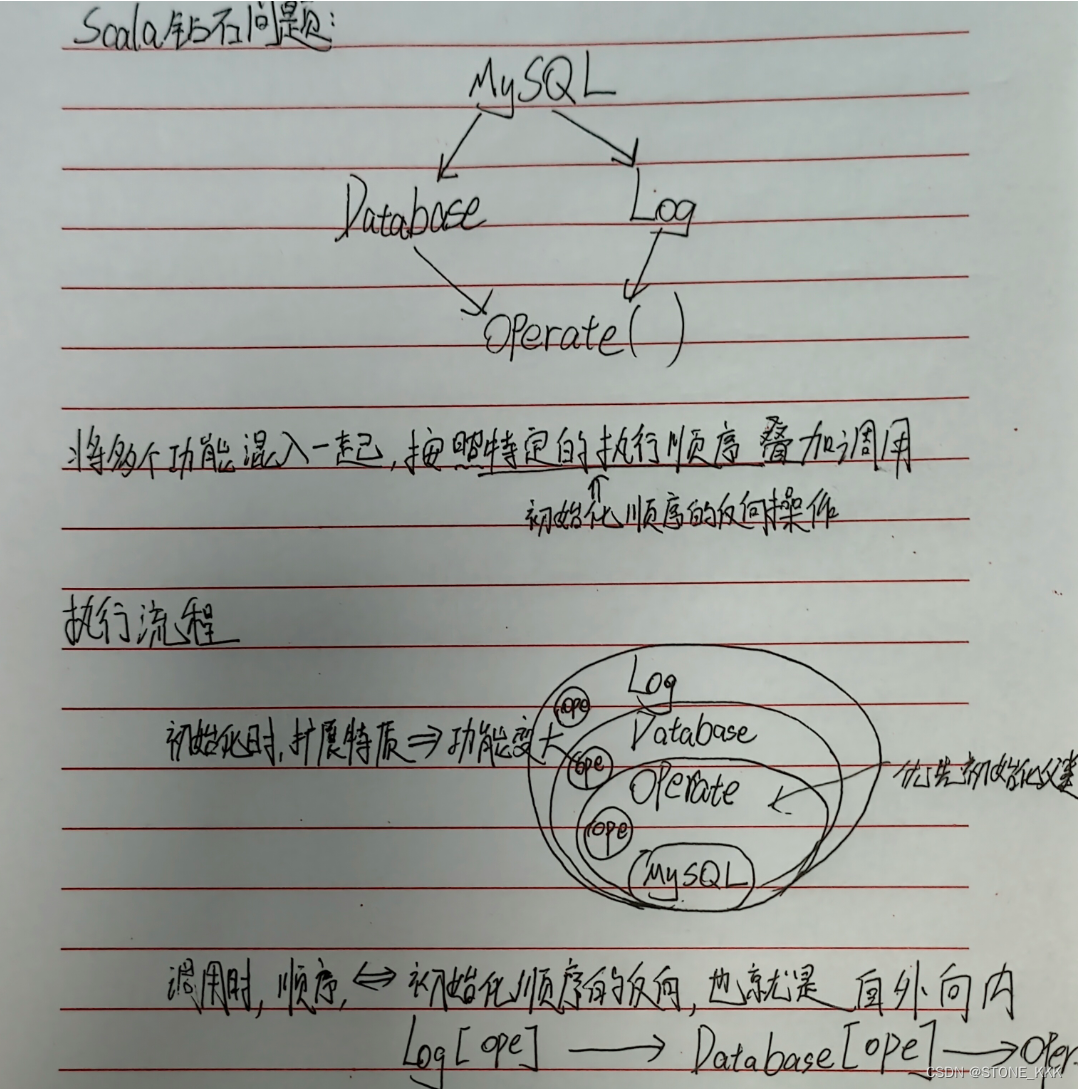 Scala钻石问题:
MySQL
Database Log
Operate( )
将多个功能混入一起,按照特定的执行顺序 叠加调用
初始化顺序的反向操作
执行流程
Log
ope
初始化时,扩展特质⇒功能变大
Database
ope
Operate
优先初始化父类
ope
MySQL
调用时,顺序,⇔ 初始化顺序的反向,也就是 自外向内
Log[ope] → Database[ope] → Oper
CSDN @STONE_KKK